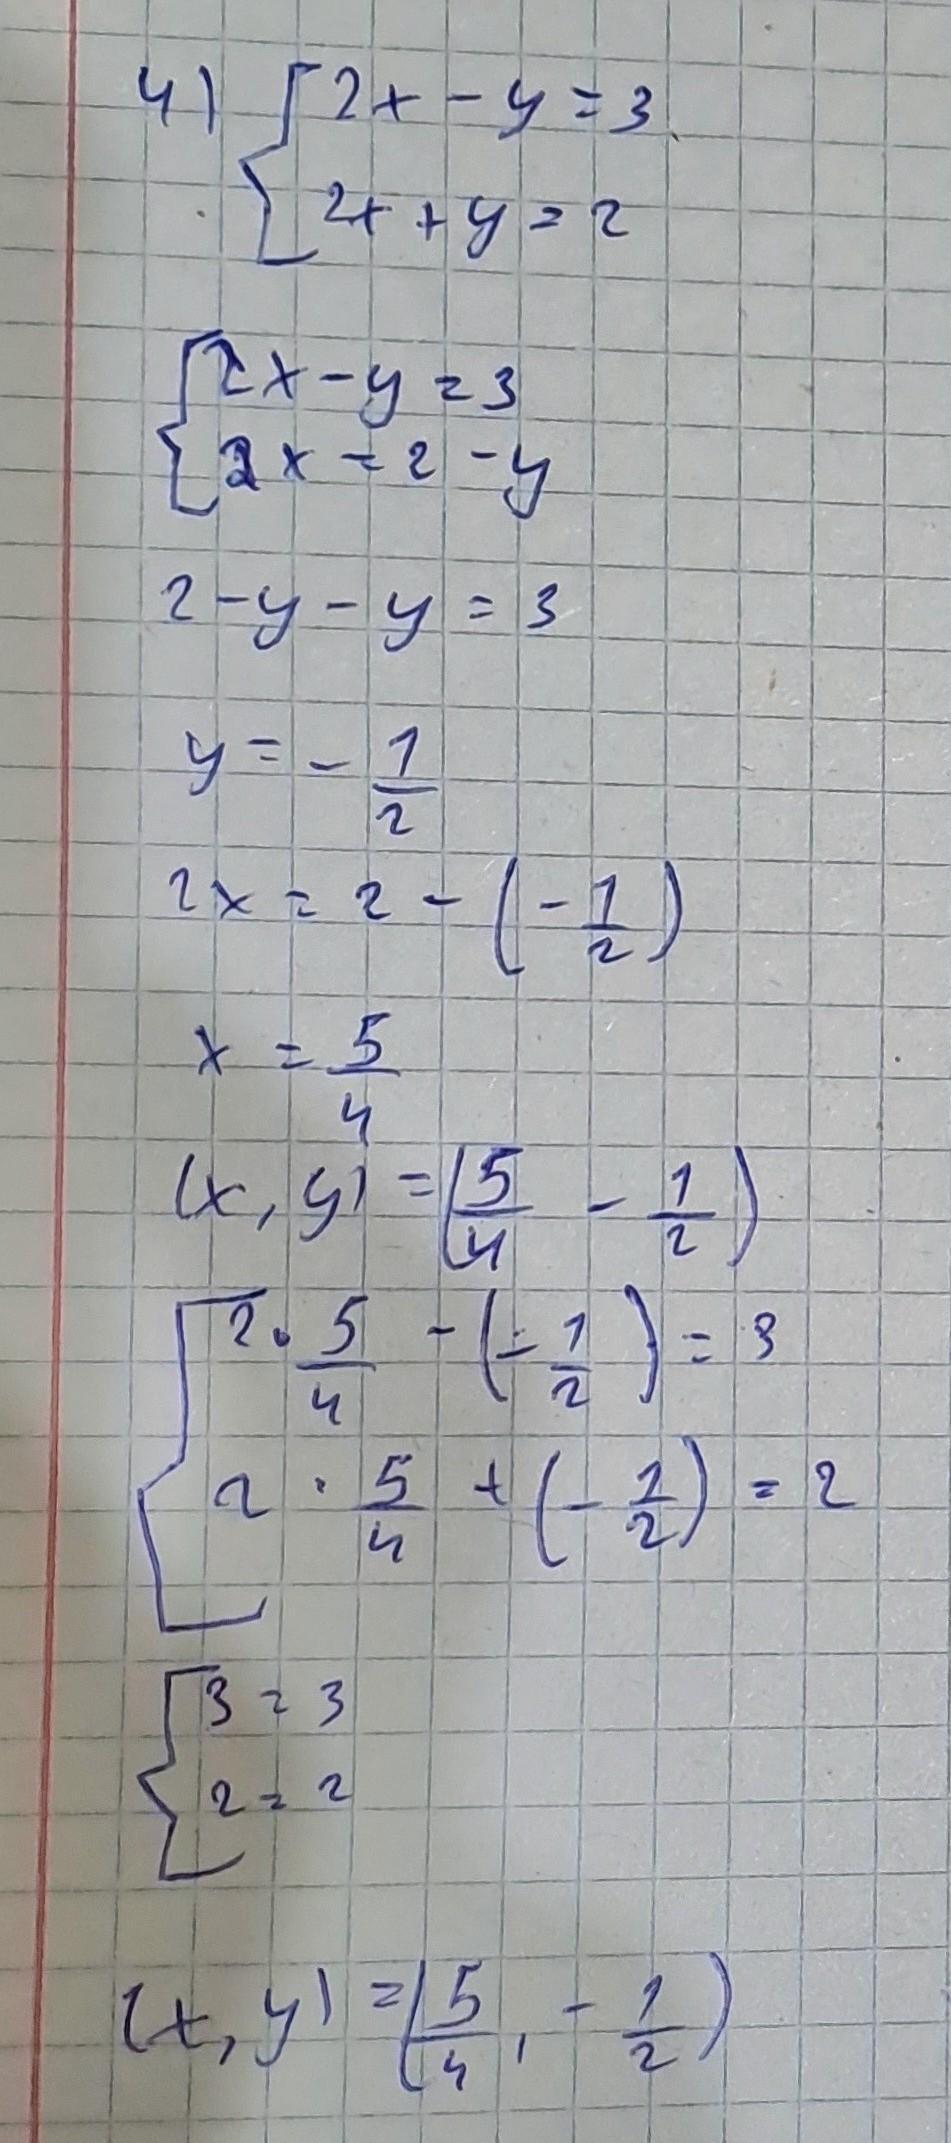 4) { 2x - y = 3
2x + y = 2
{ 2x - y = 3
2x = 2 - y
2 - y - y = 3
y = - 1/2
2x = 2 - (- 1/2)
x = 5/4
(x, y) = (5/4 - 1/2)
{ 2 · 5/4 - (- 1/2) = 3
2 · 5/4 + (- 1/2) = 2
{ 3 = 3
2 = 2
(x, y) = (5/4, - 1/2)